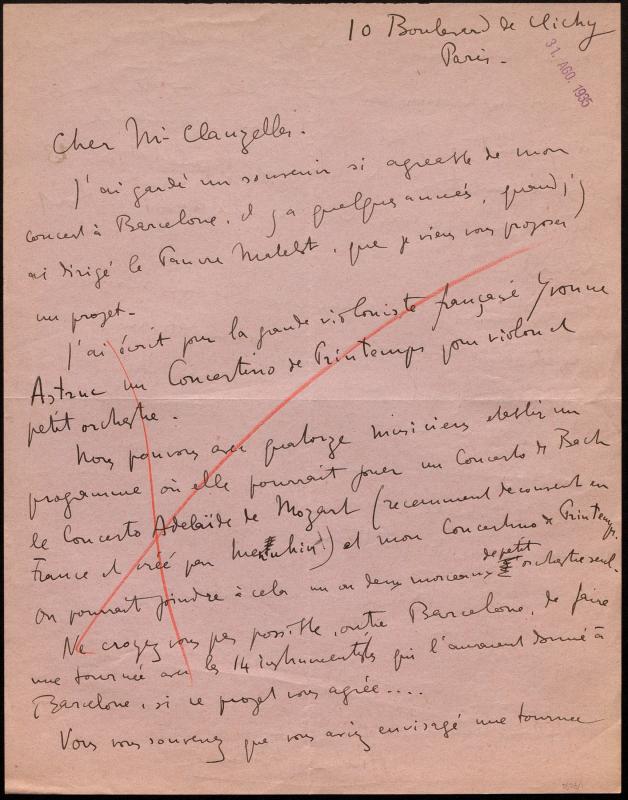 10 Boulevard de Clichy
Paris.
31. AGO. 1935
Cher Mr Clauzelles.
J'ai gardé un souvenir si agréable de mon
concert à Barcelone, il y a quelques années, quand j'
ai dirigé le Pauvre Matelot, que je viens vous proposer
un projet.
J'ai écrit pour la grande violoniste française Yvonne
Astruc un Concertino de Printemps pour violon et
petit orchestre.
Nous pouvons avec quatorze musiciens etablir un
programme où elle pourrait jouer un Concerto de Bach
le Concerto Adelaïde de Mozart (recemment decouvert en
France et créé par Menuhin) et mon Concertino de Printemps.
On pourrait joindre à cela un ou deux morceaux de petit orchestre seul.
Ne croyez vous pas possible, outre Barcelone, de faire
une tournée avec les 14 instrumentistes qui l'auraient donné à
Barcelone, si ce projet vous agrée....
Vous vous souvenez que vous aviez envisagé une tournee